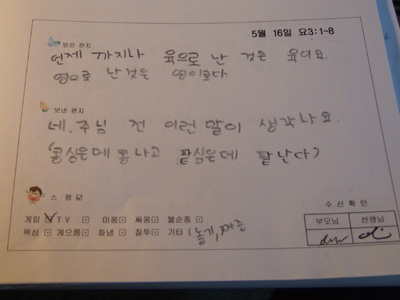 5월 16일 요3:1~8
받은 편지
언제 까지나 육으로 난 것은 육이요.
영으로 난것은 영이로다
보낸 편지
네. 주님 전 이런 말이 생각나요.
(콩심은데 콩나고 팥심은데 팥난다)
스 톱 닷
수 신 확 인
게임 TV 미움 싸움 불순종
부모님 선생님
욕심 게으름 화냄 질투 기타 (놀기,